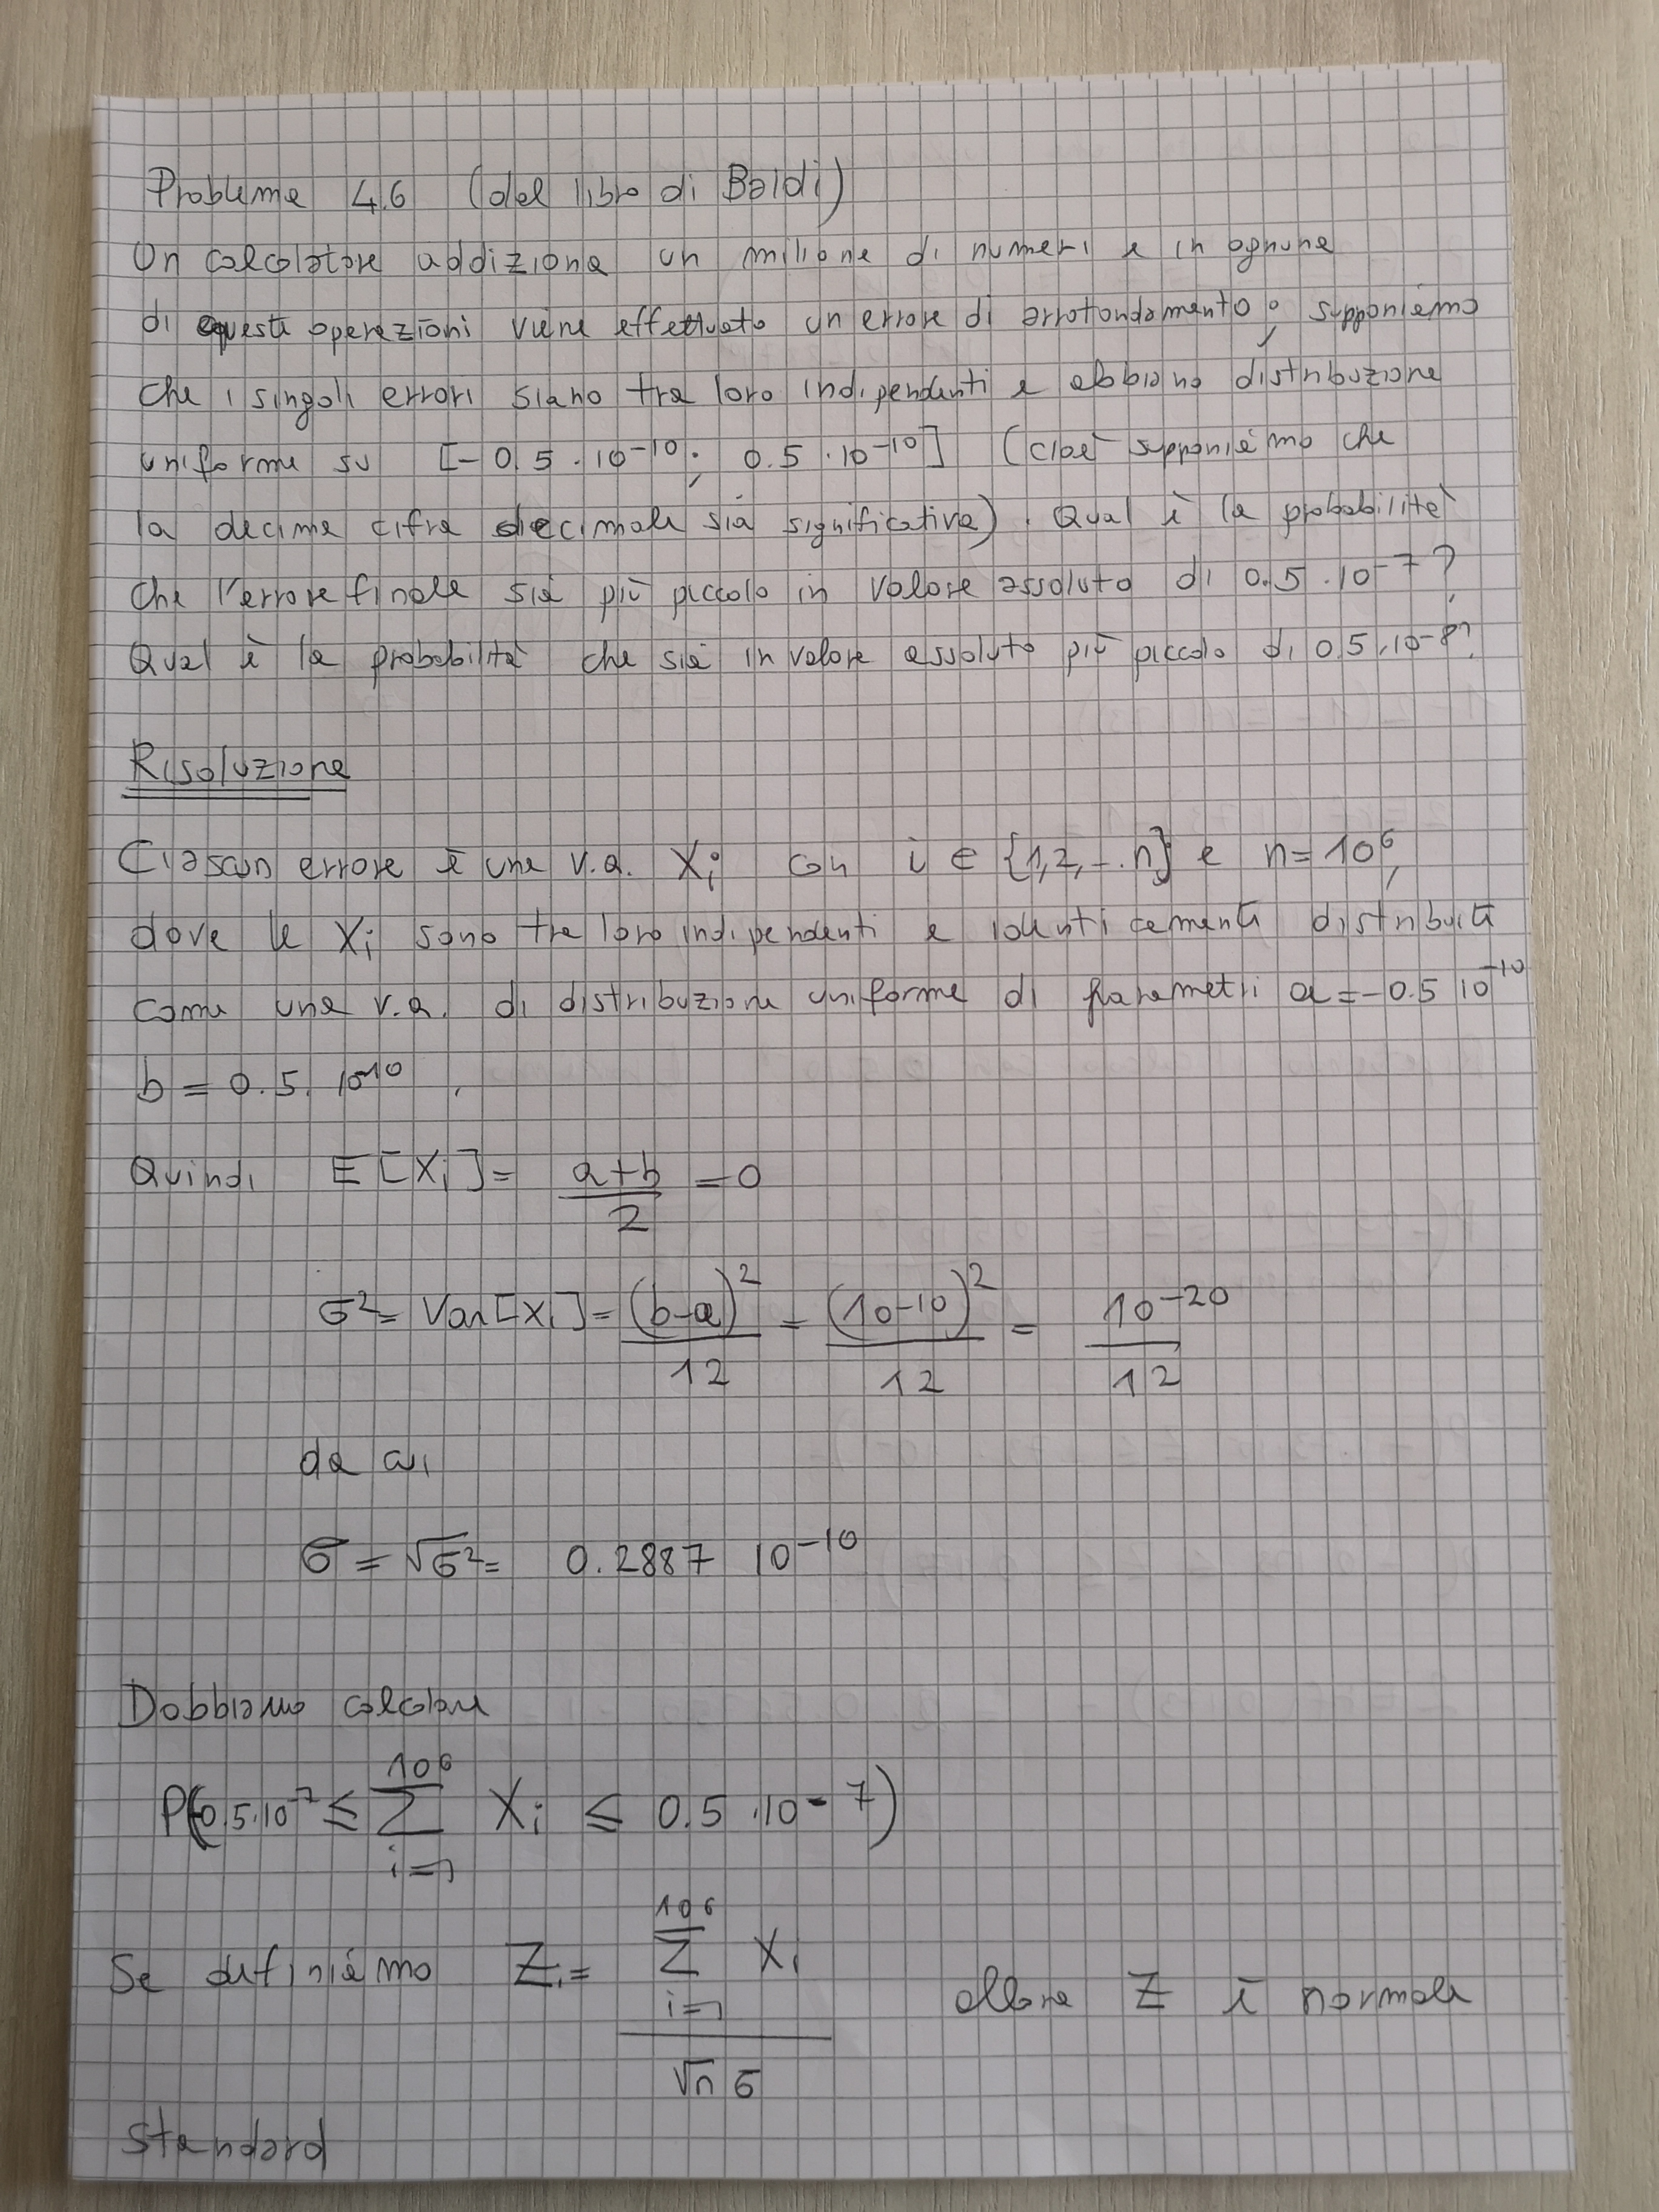 Problema 4.6 (dal libro di Baldi)
Un calcolatore addiziona un milione di numeri e in ognuna
di queste operazioni viene effettuato un errore di arrotondamento; supponiamo
che i singoli errori siano tra loro indipendenti e abbiano distribuzione
uniforme su [-0.5 · 10⁻¹⁰; 0.5 · 10⁻¹⁰] (cioè supponiamo che
la decima cifra decimale sia significativa). Qual è la probabilità
che l'errore finale sia più piccolo in valore assoluto di 0.5 · 10⁻⁷?
Qual è la probabilità che sia in valore assoluto più piccolo di 0.5 · 10⁻⁸?
Risoluzione
Ciascun errore è una v.a. Xi con i ∈ {1,2,...n} e n = 10⁶,
dove le Xi sono tra loro indipendenti e identicamente distribuite
come una v.a. di distribuzione uniforme di parametri a = -0.5 10⁻¹⁰
b = 0.5 · 10⁻¹⁰.
Quindi E[Xi] = (a+b)/2 = 0
σ² = Var[Xi] = (b-a)²/12 = (10⁻¹⁰)²/12 = 10⁻²⁰/12
da cui
σ = √σ² = 0.2887 10⁻¹⁰
Dobbiamo calcolare
P(-0.5·10⁻⁷ ≤ Σ_{i=1}^{10⁶} Xi ≤ 0.5 · 10⁻⁷)
Se definiamo Z := Σ_{i=1}^{10⁶} Xi / √n σ allora Z è normale
standard